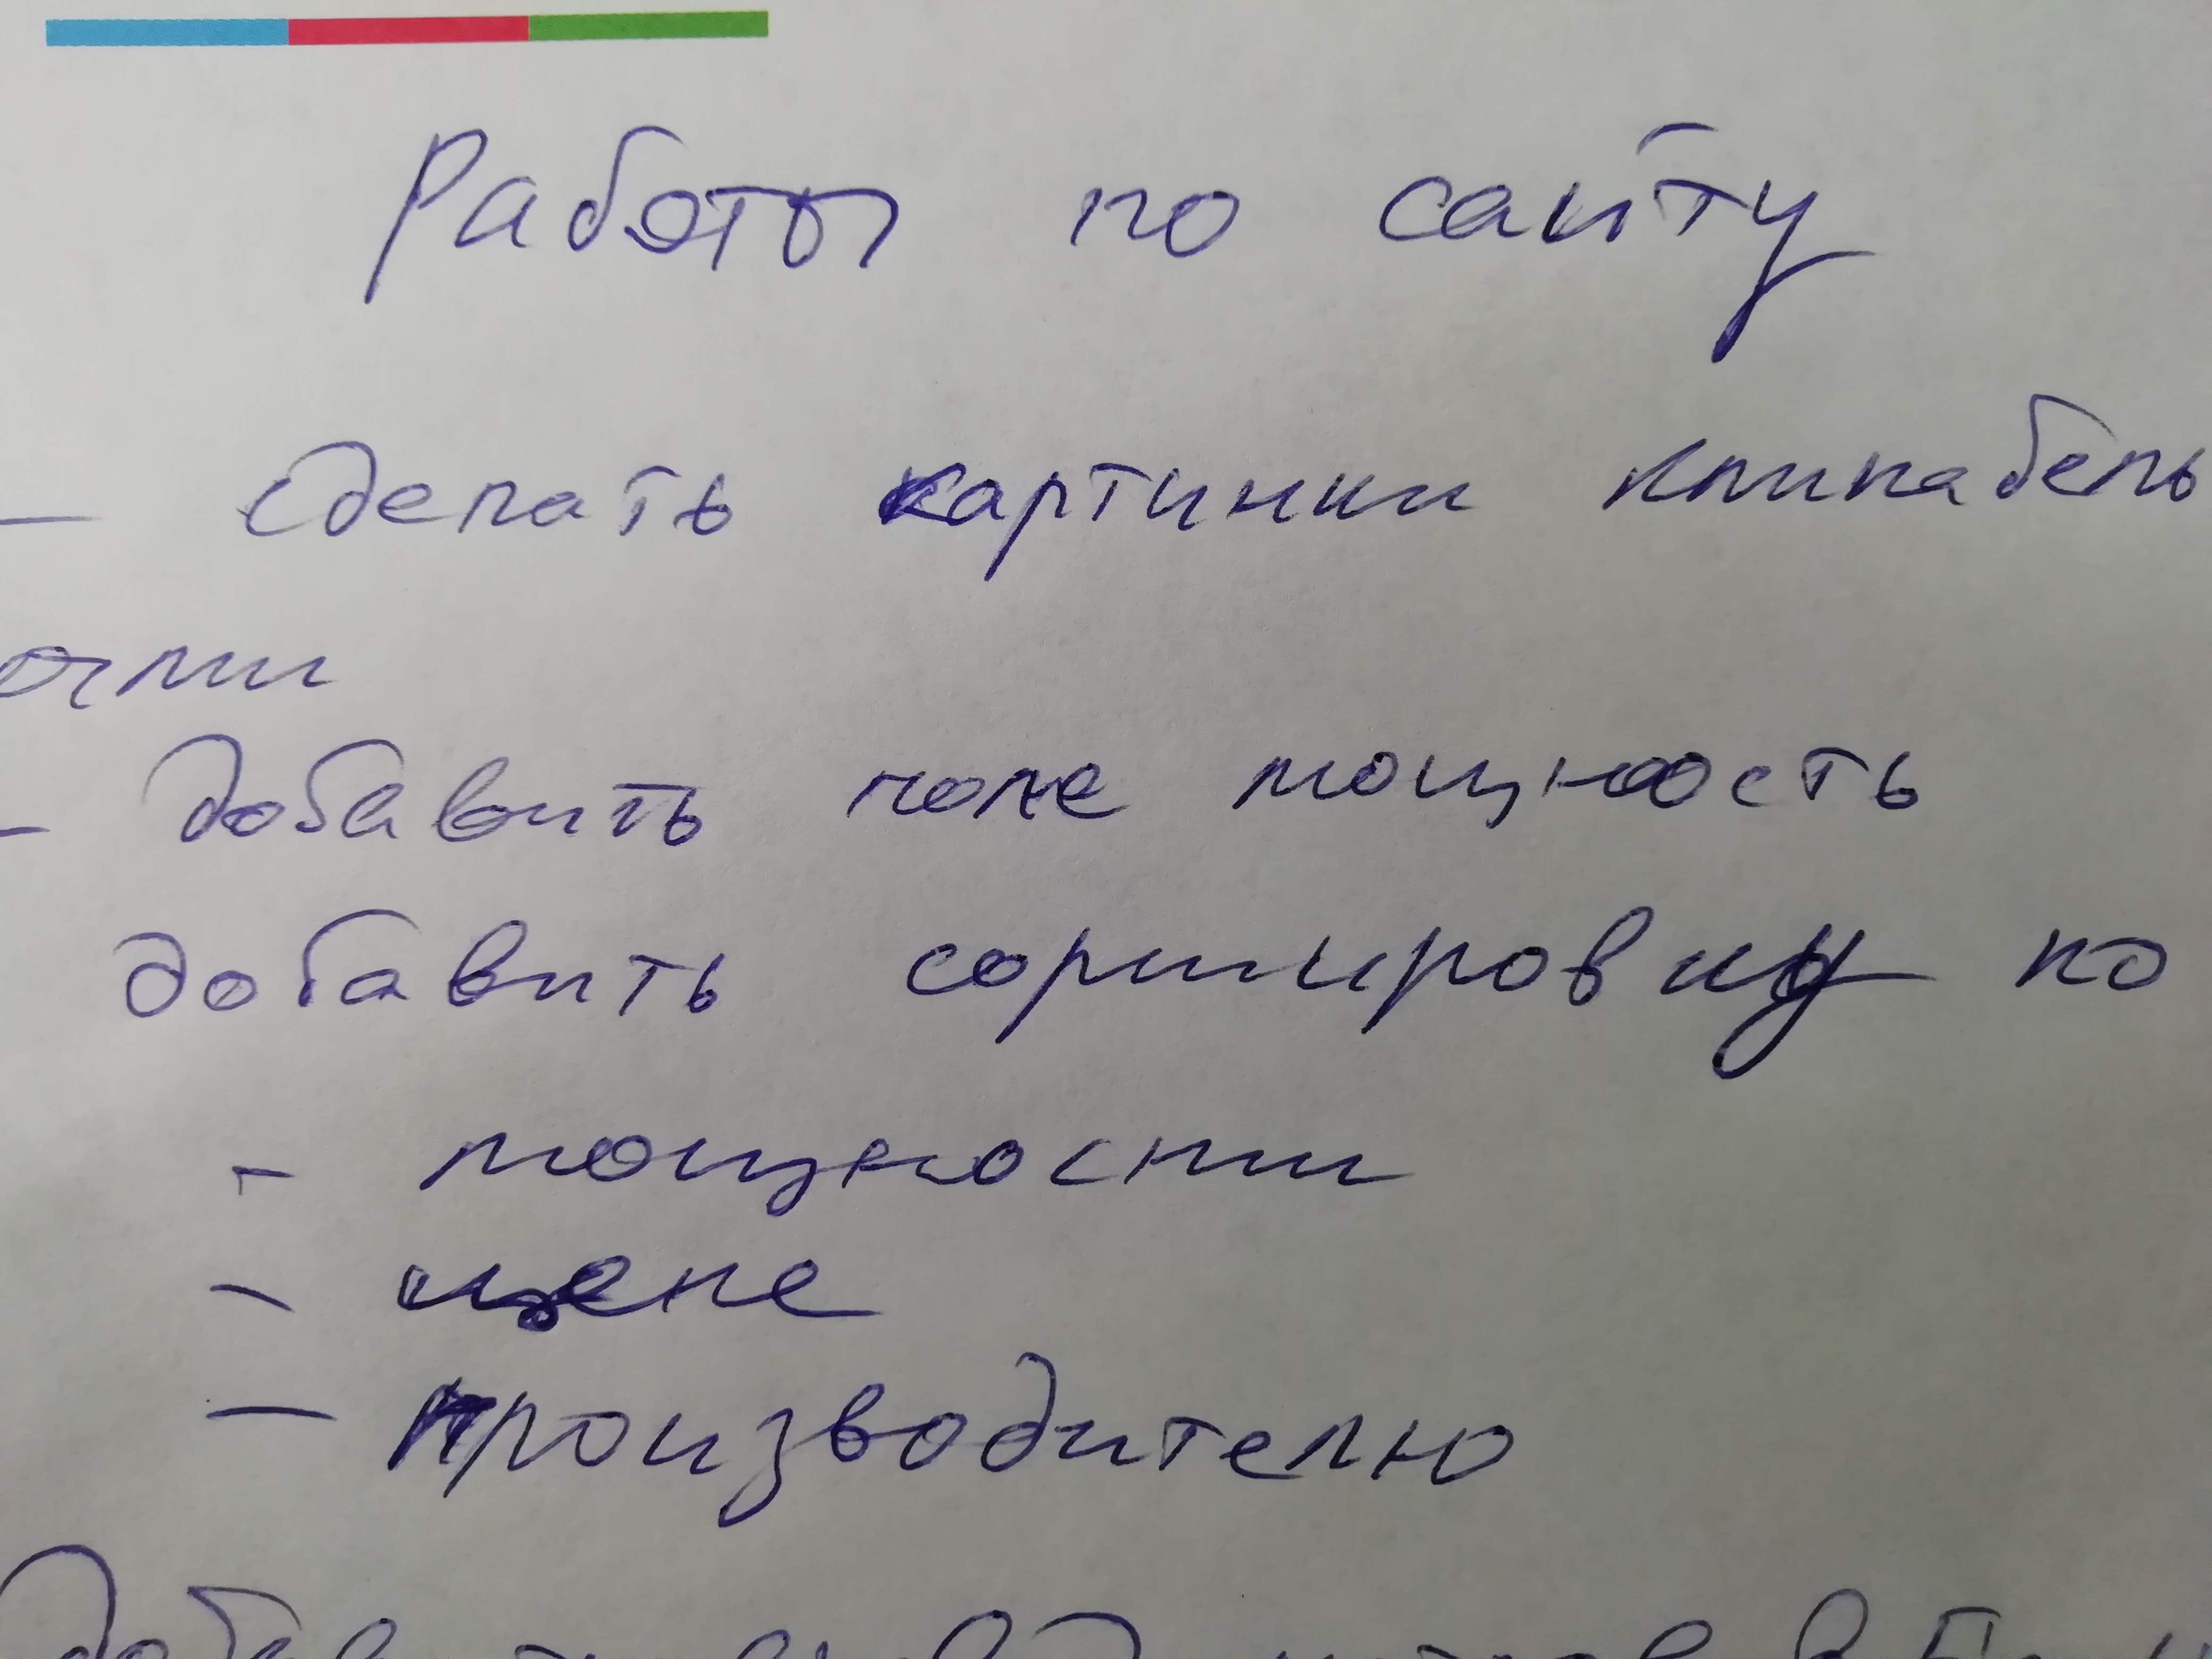 Работы по сайту
- сделать картинки кликабель
- добавить поле мощность
добавить сортировку по
- мощности
- цене
- производителю